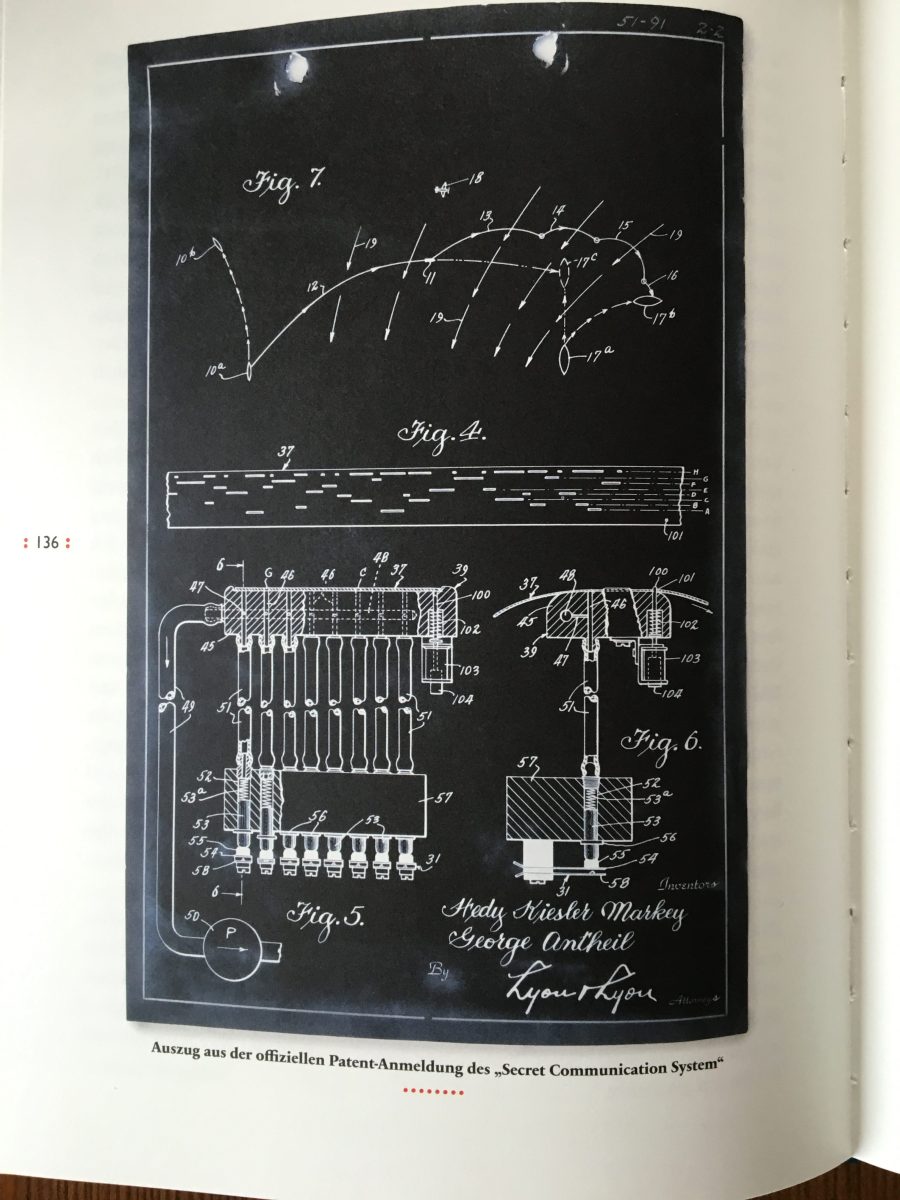 51-91 2-2
Fig. 7.
18
13 14 15
10b 19 19
12 11 17c 16
19 17b
10a 17a
Fig. 4.
37
H
G
F
E
D
C
B
A
101
6
47 G 46 46 C 48 37 39
100
45 102
103
104
49 51 51
52
53a
53 57
56 53
55
54
58 31
6
50
P
Fig. 5.
37 48 100 101
45 46
39 102
47 103
104
51
Fig. 6.
57 52
53a
53
56
55
54
31 58
Inventors
Hedy Kiesler Markey
George Antheil
By
Lyon & Lyon
Attorneys
: 136 :
Auszug aus der offiziellen Patent-Anmeldung des „Secret Communication System“